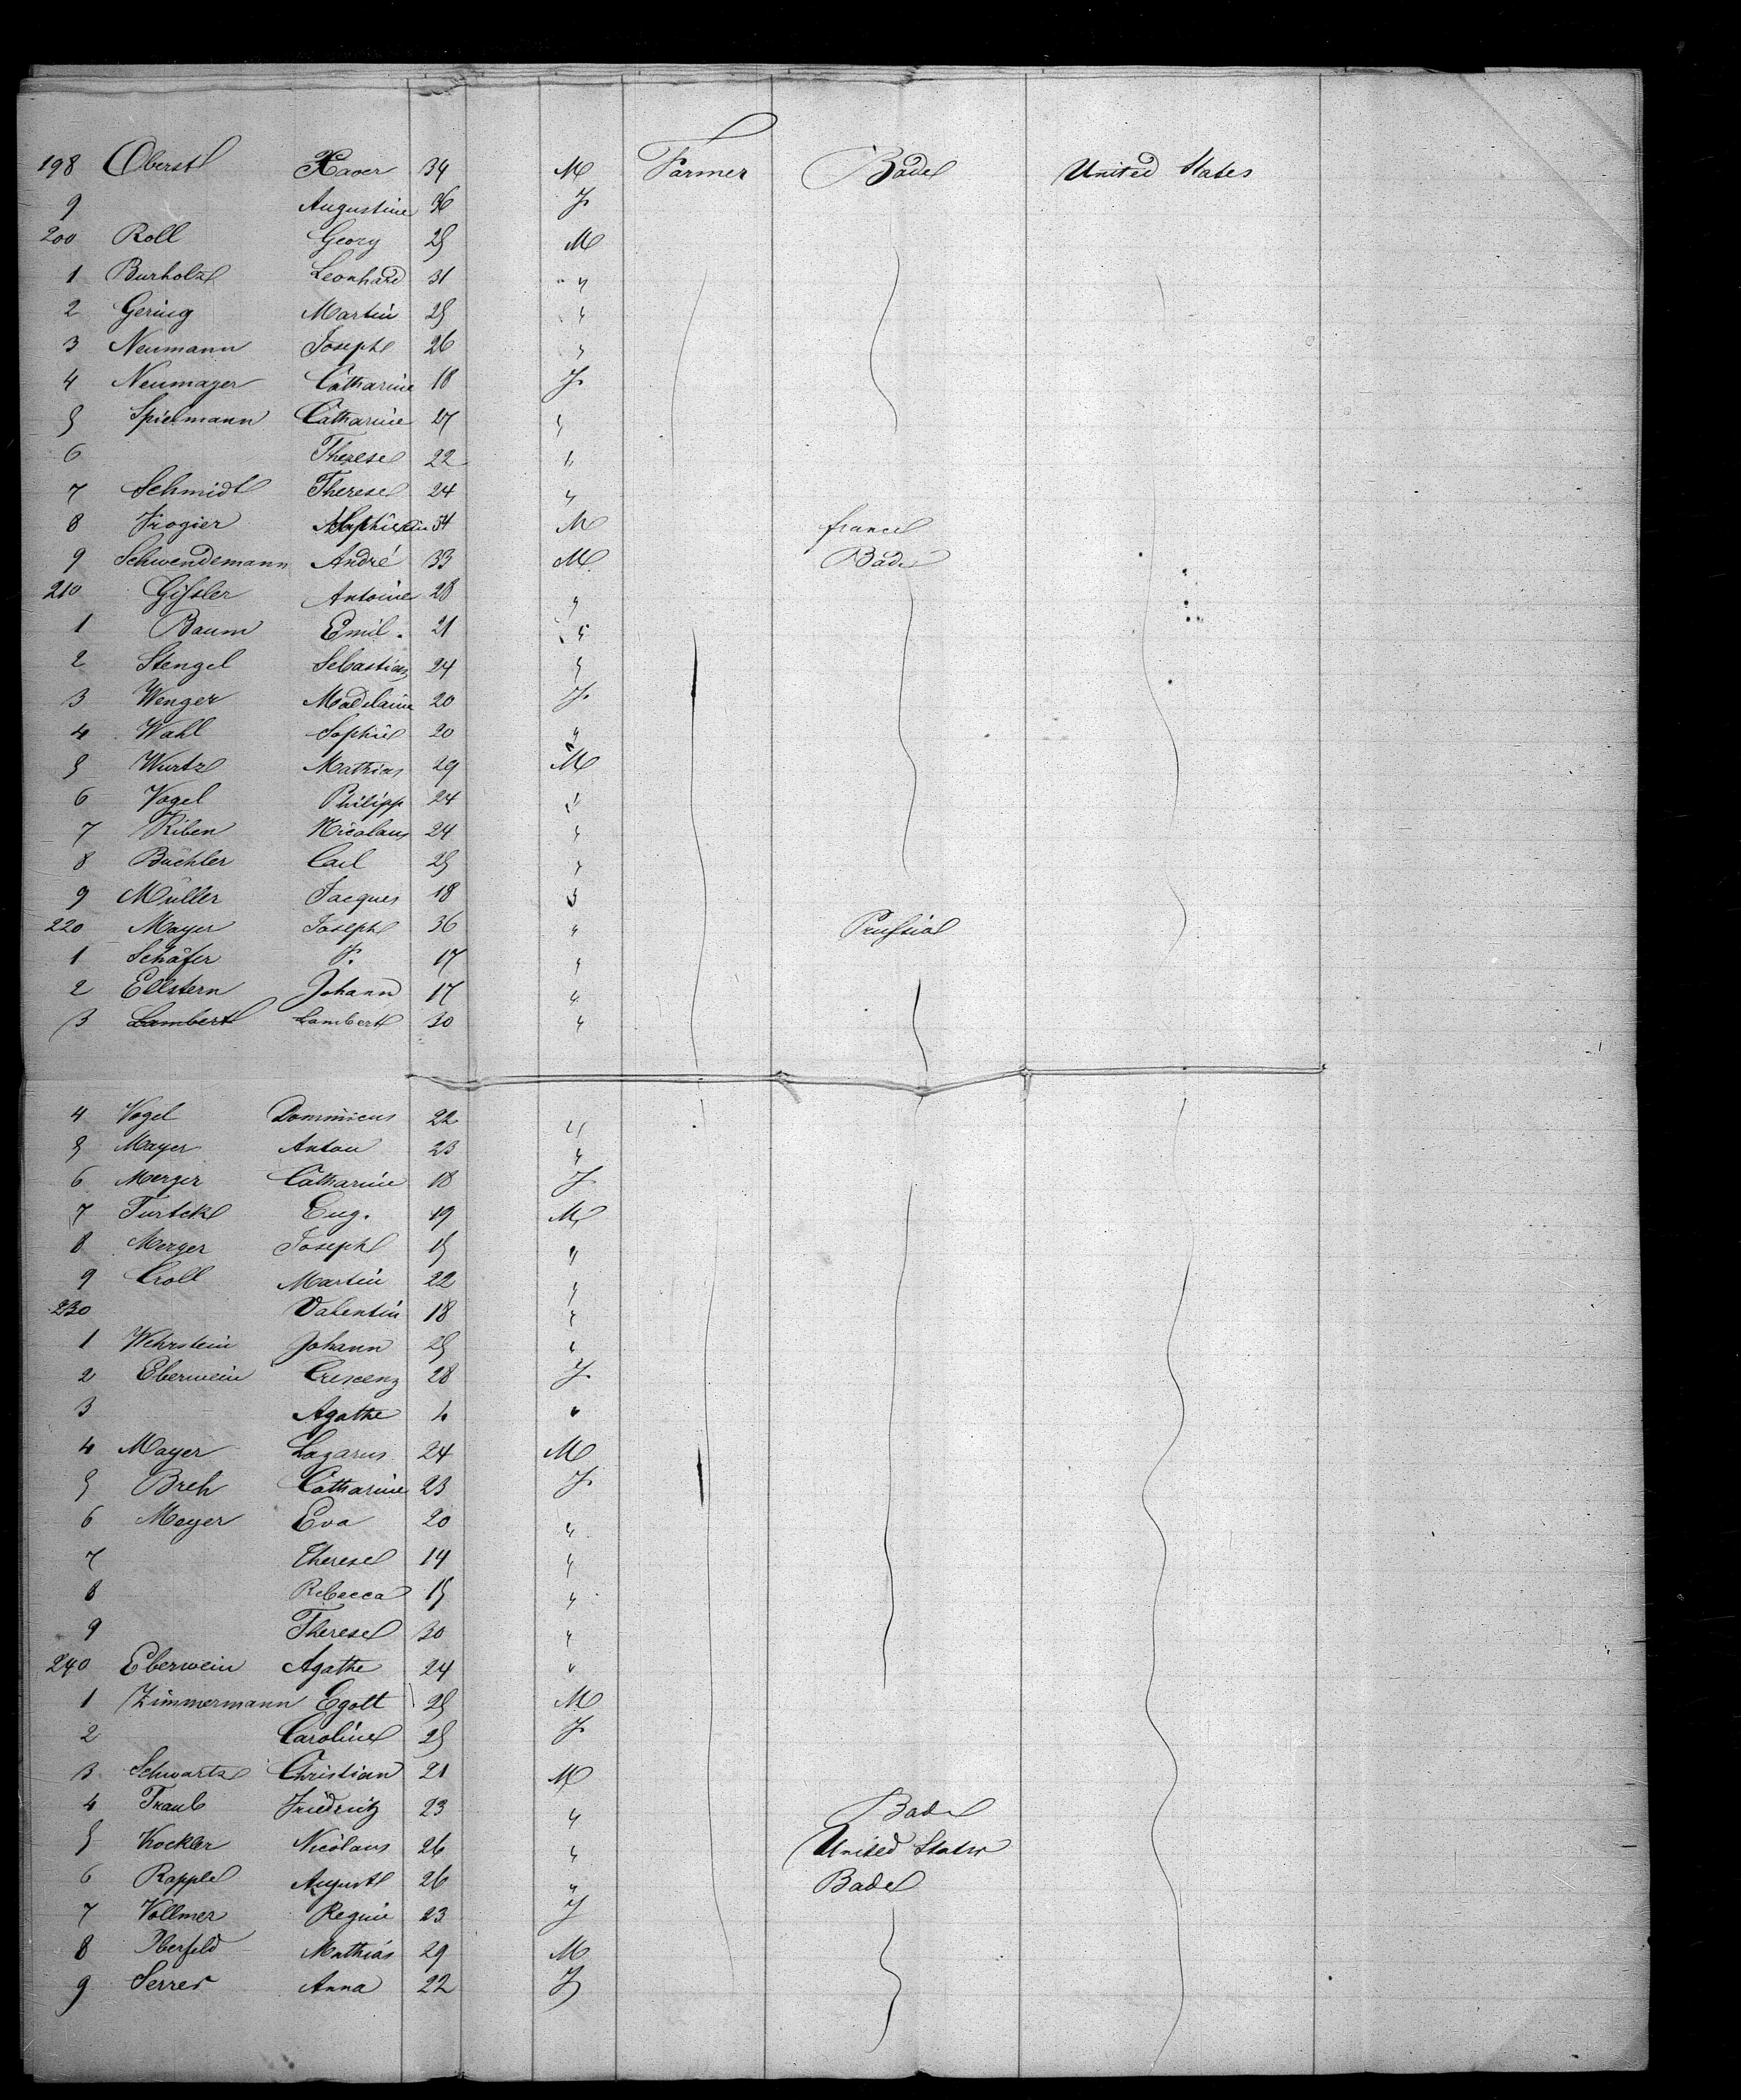 198 Oberst Xaver 34 M Farmer Bade United States
9 Augustine 36 F
200 Roll Georg 25 M
1 Burholz Leonhard 31 "
2 Gering Martin 25 "
3 Neumann Joseph 26 "
4 Neumayer Catharine 18 F
5 Spielmann Catharine 27 "
6 Therese 22 "
7 Schmidt Therese 24 "
8 Frogier 34 M france
9 Schwendemann André 33 M Bade
210 Gissler Antoine 28 "
1 Baum Emil. 21 "
2 Stengel Sebastian 24 "
3 Wenger Madelaine 20 F
4 Wahl Sophie 20 "
5 Wurtz Mathias 29 M
6 Vogel Philipp 24 "
7 Riben Nicolaus 24 "
8 Büchler Carl 25 "
9 Müller Jacques 18 "
220 Mayer Joseph 36 " Prussia
1 Schäfer F. 17 "
2 Ellstern Johann 17 "
3 Lambert Lambert 30 "
4 Vogel Dominicus 22 "
5 Mayer Anton 23 "
6 Merger Catharine 18 F
7 Turteke Eug. 19 M
8 Merger Joseph 15 "
9 Croll Martin 22 "
230 Valentin 18 "
1 Wehrstein Johann 25 "
2 Eberwein Crescenz 28 F
3 Agathe "
4 Mayer Lazarus 24 M
5 Breh Catharine 23 F
6 Meyer Eva 20 "
7 Therese 14 "
8 Rebecca 15 "
9 Therese 30 "
240 Eberwein Agathe 24 "
1 Zimmermann Egolt 25 M
2 Caroline 25 F
3 Schwartz Christian 21 M
4 Traub Friedritz 23 " Bade
5 Kockler Nicolaus 26 " United States
6 Rapple August 26 " Bade
7 Vollmer Regine 23 F
8 Oberfeld Mathias 29 M
9 Serrer Anna 22 F